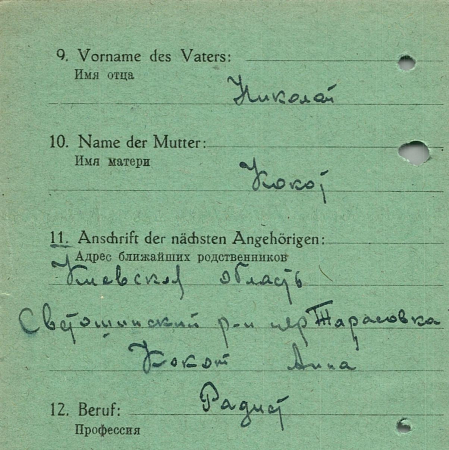 9. Vorname des Vaters:
Имя отца
Николай
10. Name der Mutter:
Имя матери
Кокот
11. Anschrift der nächsten Angehörigen:
Адрес ближайших родственников
Киевская область
Светошинский р-н Тарасовка
Кокот Анна
12. Beruf: Радист
Профессия